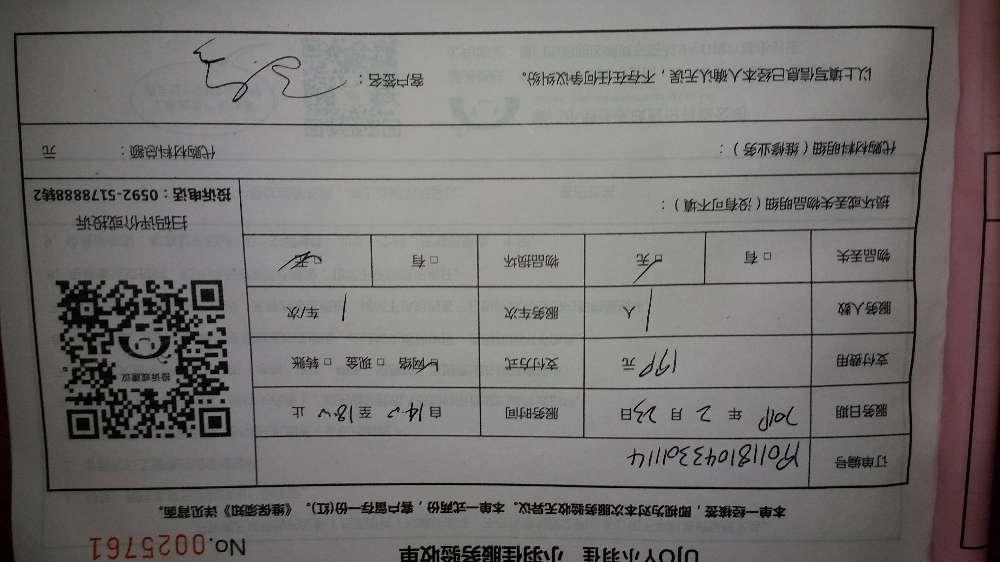 UJOY小羽佳 小羽佳服务验收单
No.0025761
本单一经核签，即视为对本次服务验收无异议。本单一式两份，客户留存一份(红)。《维保须知》详见背面。
订单编号
服务日期 2019 年 2 月 23 日 服务时间 自 14:00 至 18:00 止
支付费用 199 元 支付方式 □网络 □现金 □转账
服务人数 1 人 服务车次 1 车/次
物品丢失 □有 □无 物品损坏 □有 □无
投诉或建议
扫码评价或投诉
投诉电话：0592-5178888转2
损坏或丢失物品明细（没有可不填）：
代购材料明细（维修业务）： 代购材料总额： 元
以上填写信息已经本人确认无误，不存在任何争议纠纷。 客户签名：